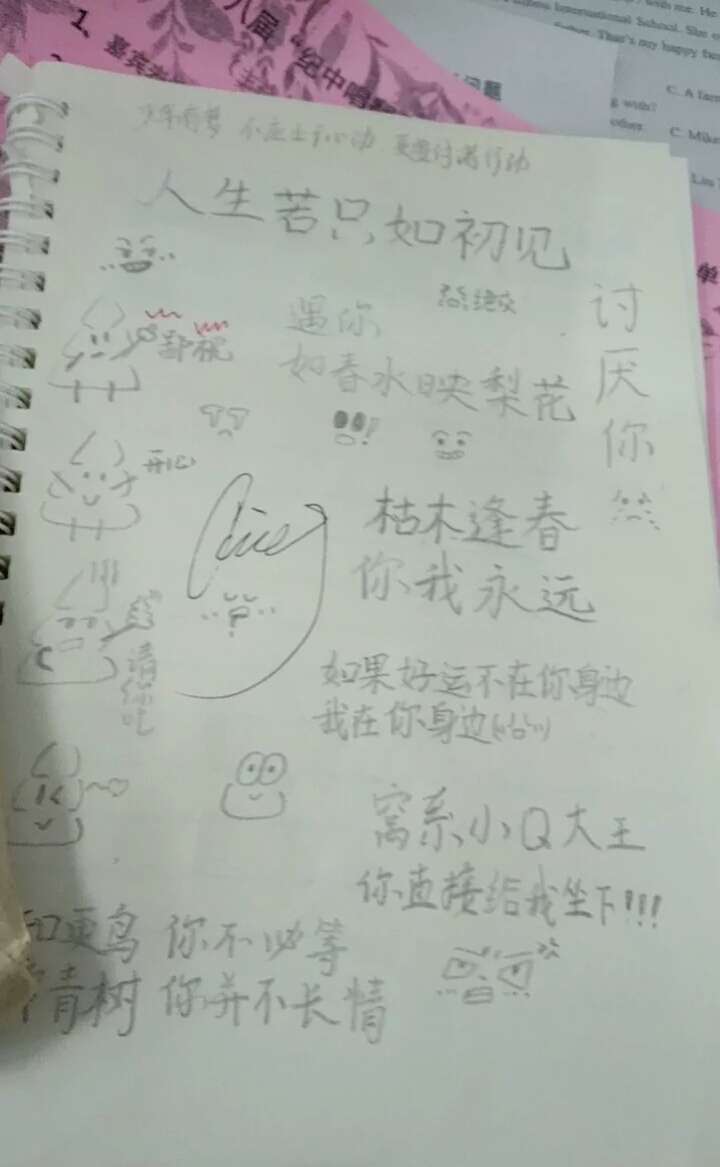 1、
八届“纪中唱
问题
with me. He
International School. She
That's my happy fam
C. A fam
with?
C. Mike
少年有梦 不应止于心动 更要付诸行动
人生若只如初见
遇你
绝交
如春水映梨花
讨厌你
鄙视
开心
枯木逢春
你我永远
请你吃
如果好运不在你身边
我在你身边
窝系小Q大王
你直接给我坐下!!!
知更鸟 你不必等
青树 你并不长情